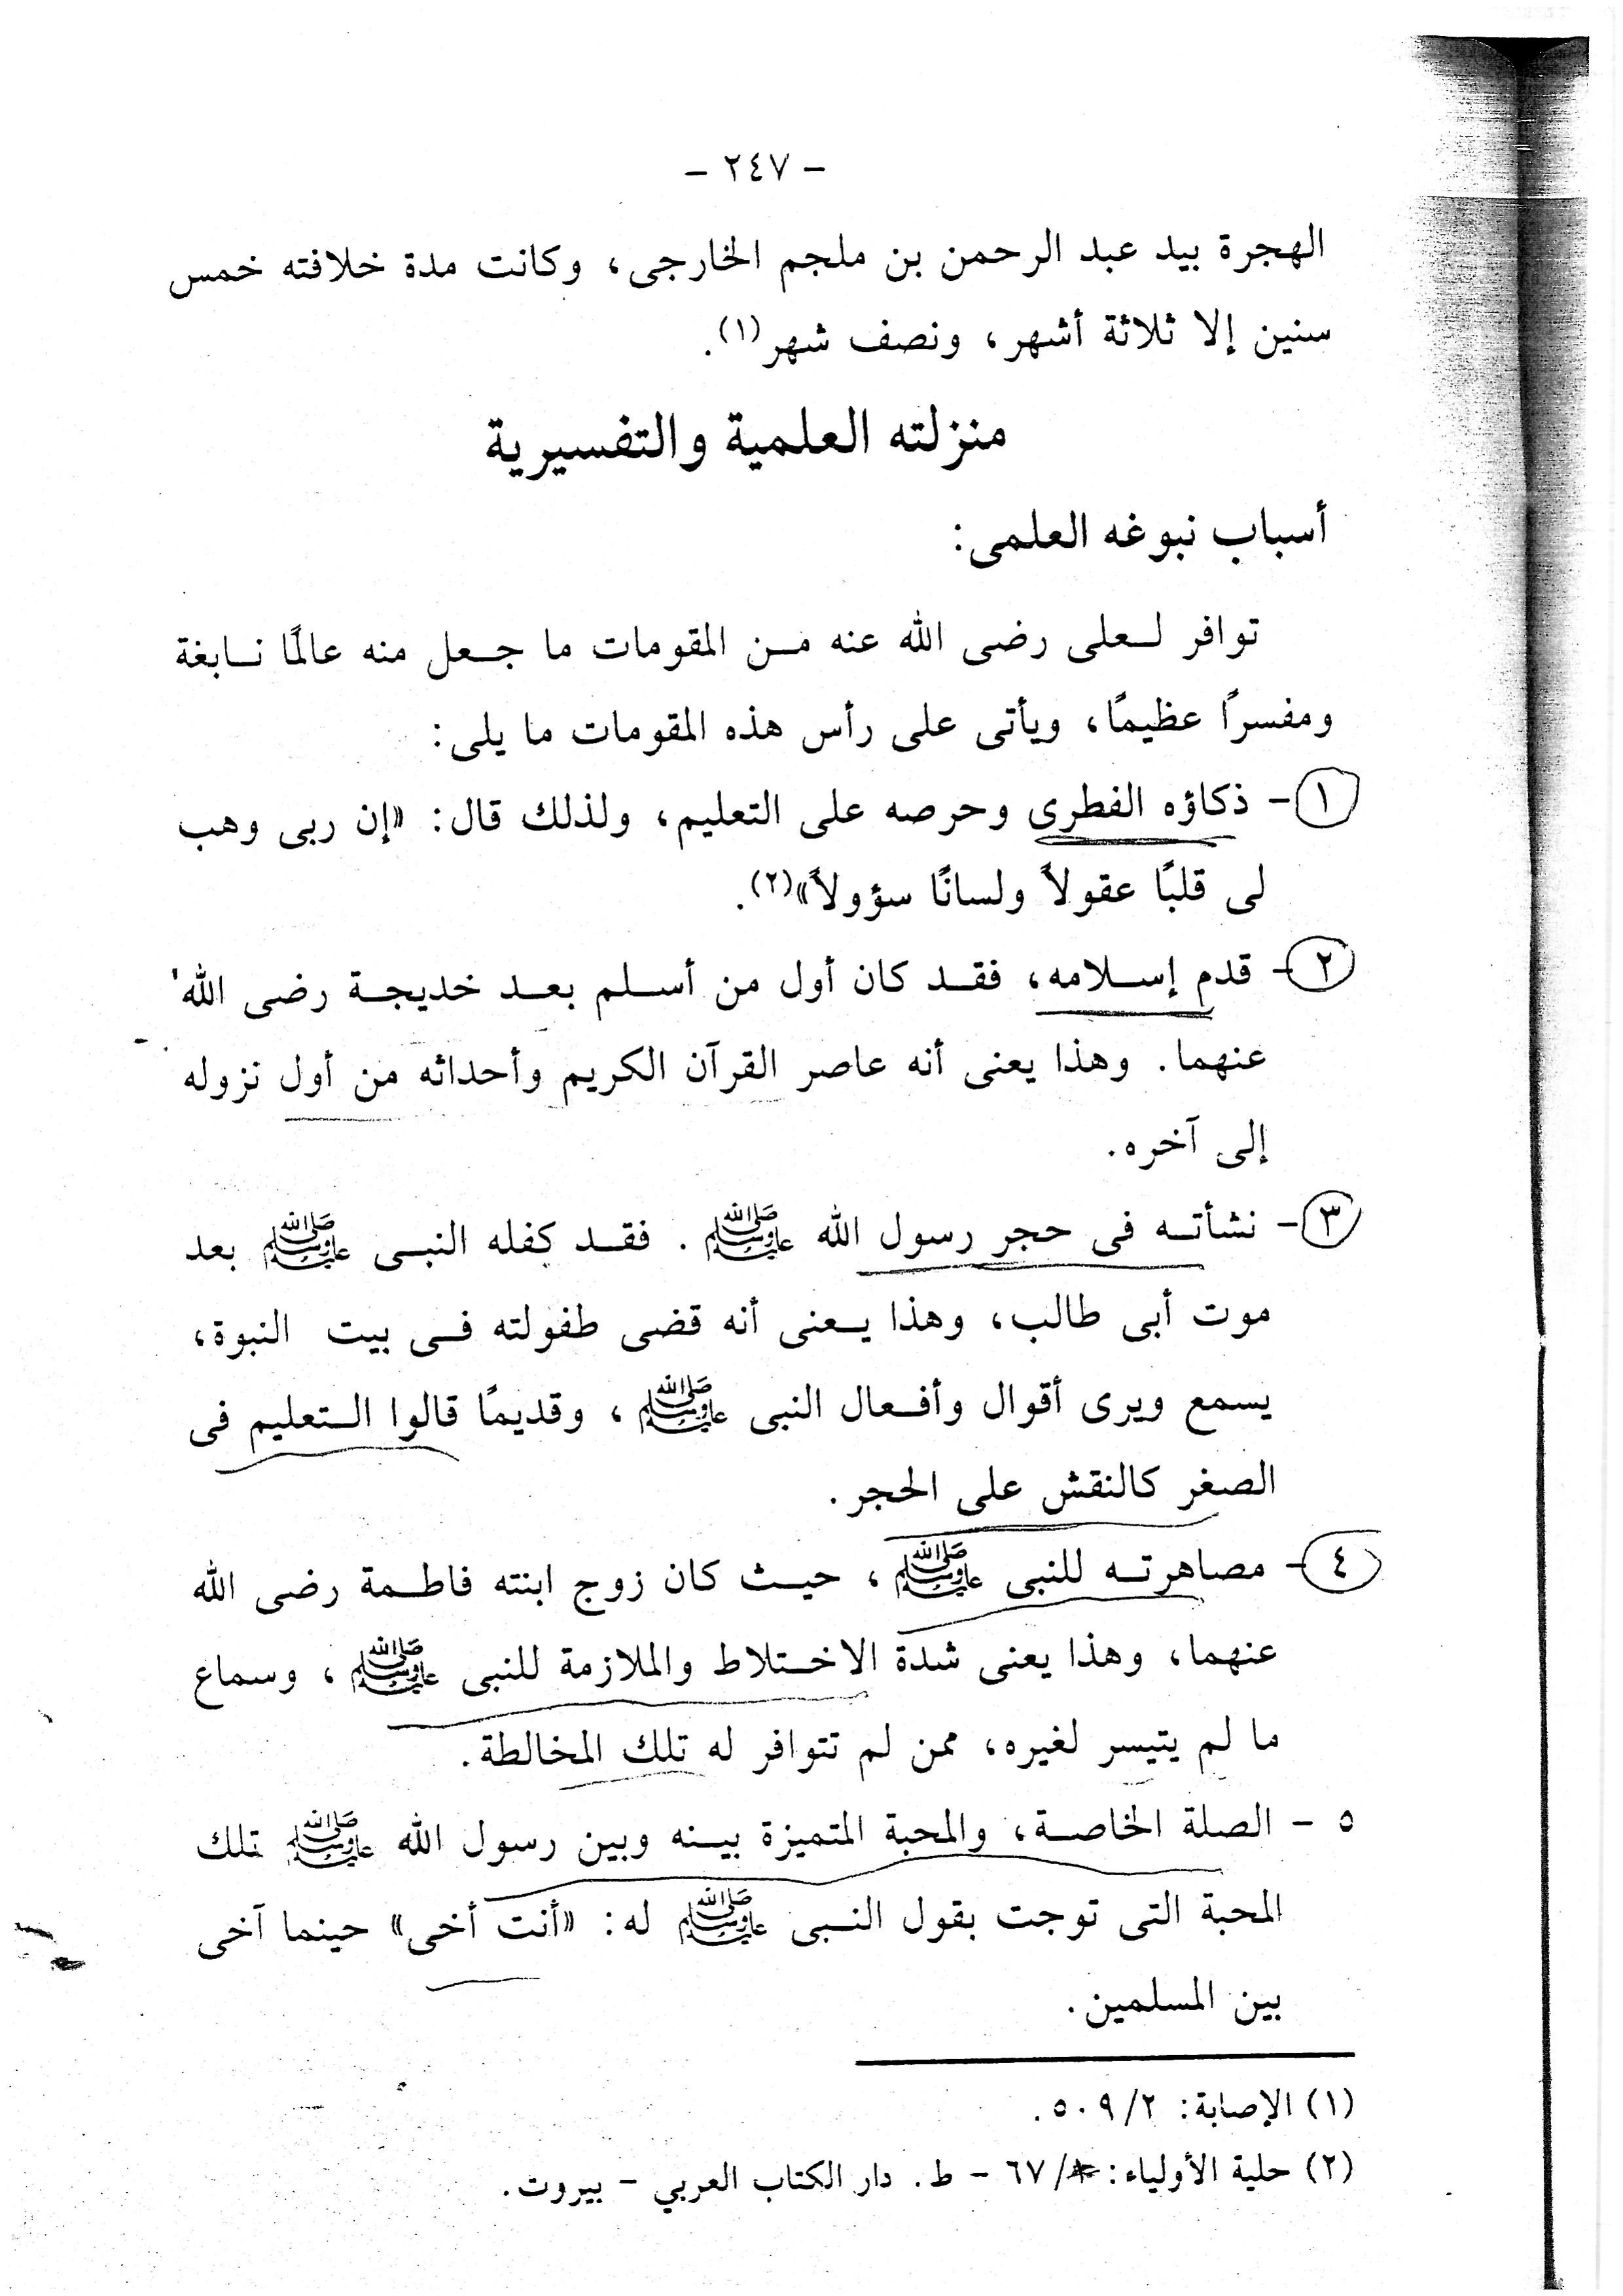 - ٢٤٧ -
الهجرة بيد عبد الرحمن بن ملجم الخارجى، وكانت مدة خلافته خمس
سنين إلا ثلاثة أشهر، ونصف شهر(١).
منزلته العلمية والتفسيرية
أسباب نبوغه العلمى:
توافر لعلى رضى الله عنه من المقومات ما جعل منه عالمًا نابغة
ومفسرًا عظيمًا، ويأتى على رأس هذه المقومات ما يلى:
١- ذكاؤه الفطرى وحرصه على التعليم، ولذلك قال: «إن ربى وهب
لى قلبًا عقولاً ولسانًا سؤولاً»(٢).
٢- قدم إسلامه، فقد كان أول من أسلم بعد خديجة رضى الله
عنهما. وهذا يعنى أنه عاصر القرآن الكريم وأحداثه من أول نزوله
إلى آخره.
٣- نشأته فى حجر رسول الله ﷺ. فقد كفله النبى ﷺ بعد
موت أبى طالب، وهذا يعنى أنه قضى طفولته فى بيت النبوة،
يسمع ويرى أقوال وأفعال النبى ﷺ، وقديمًا قالوا التعليم فى
الصغر كالنقش على الحجر.
٤- مصاهرته للنبى ﷺ، حيث كان زوج ابنته فاطمة رضى الله
عنهما، وهذا يعنى شدة الاختلاط والملازمة للنبى ﷺ، وسماع
ما لم يتيسر لغيره، ممن لم تتوافر له تلك المخالطة.
٥ - الصلة الخاصة، والمحبة المتميزة بينه وبين رسول الله ﷺ تلك
المحبة التى توجت بقول النبى ﷺ له: «أنت أخى» حينما آخى
بين المسلمين.
(١) الإصابة: ٥٠٩/٢.
(٢) حلية الأولياء: /٦٧ - ط. دار الكتاب العربي - بيروت.